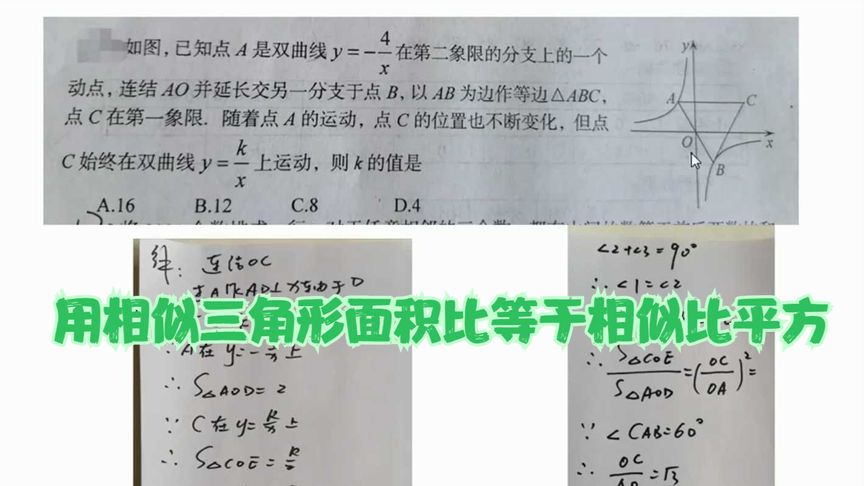 如图,已知点 A 是双曲线 y = -4/x 在第二象限的分支上的一个
动点,连结 AO 并延长交另一分支于点 B,以 AB 为边作等边△ABC,
点 C 在第一象限. 随着点 A 的运动,点 C 的位置也不断变化,但点
C 始终在双曲线 y = k/x 上运动,则 k 的值是
A.16 B.12 C.8 D.4
y
A
C
O
x
B
解:连结OC
用相似三角形面积比等于相似比平方
∵A在 y=-4/x 上
∴ S△AOD = 2
∵ C在 y=k/x 上
∴ S△COE = k/2
∠2+∠3=90°
∴∠1=∠2
∴ S△COE/S△AOD = (OC/OA)²=
∵ ∠CAB=60°
∴ OC/AO = √3